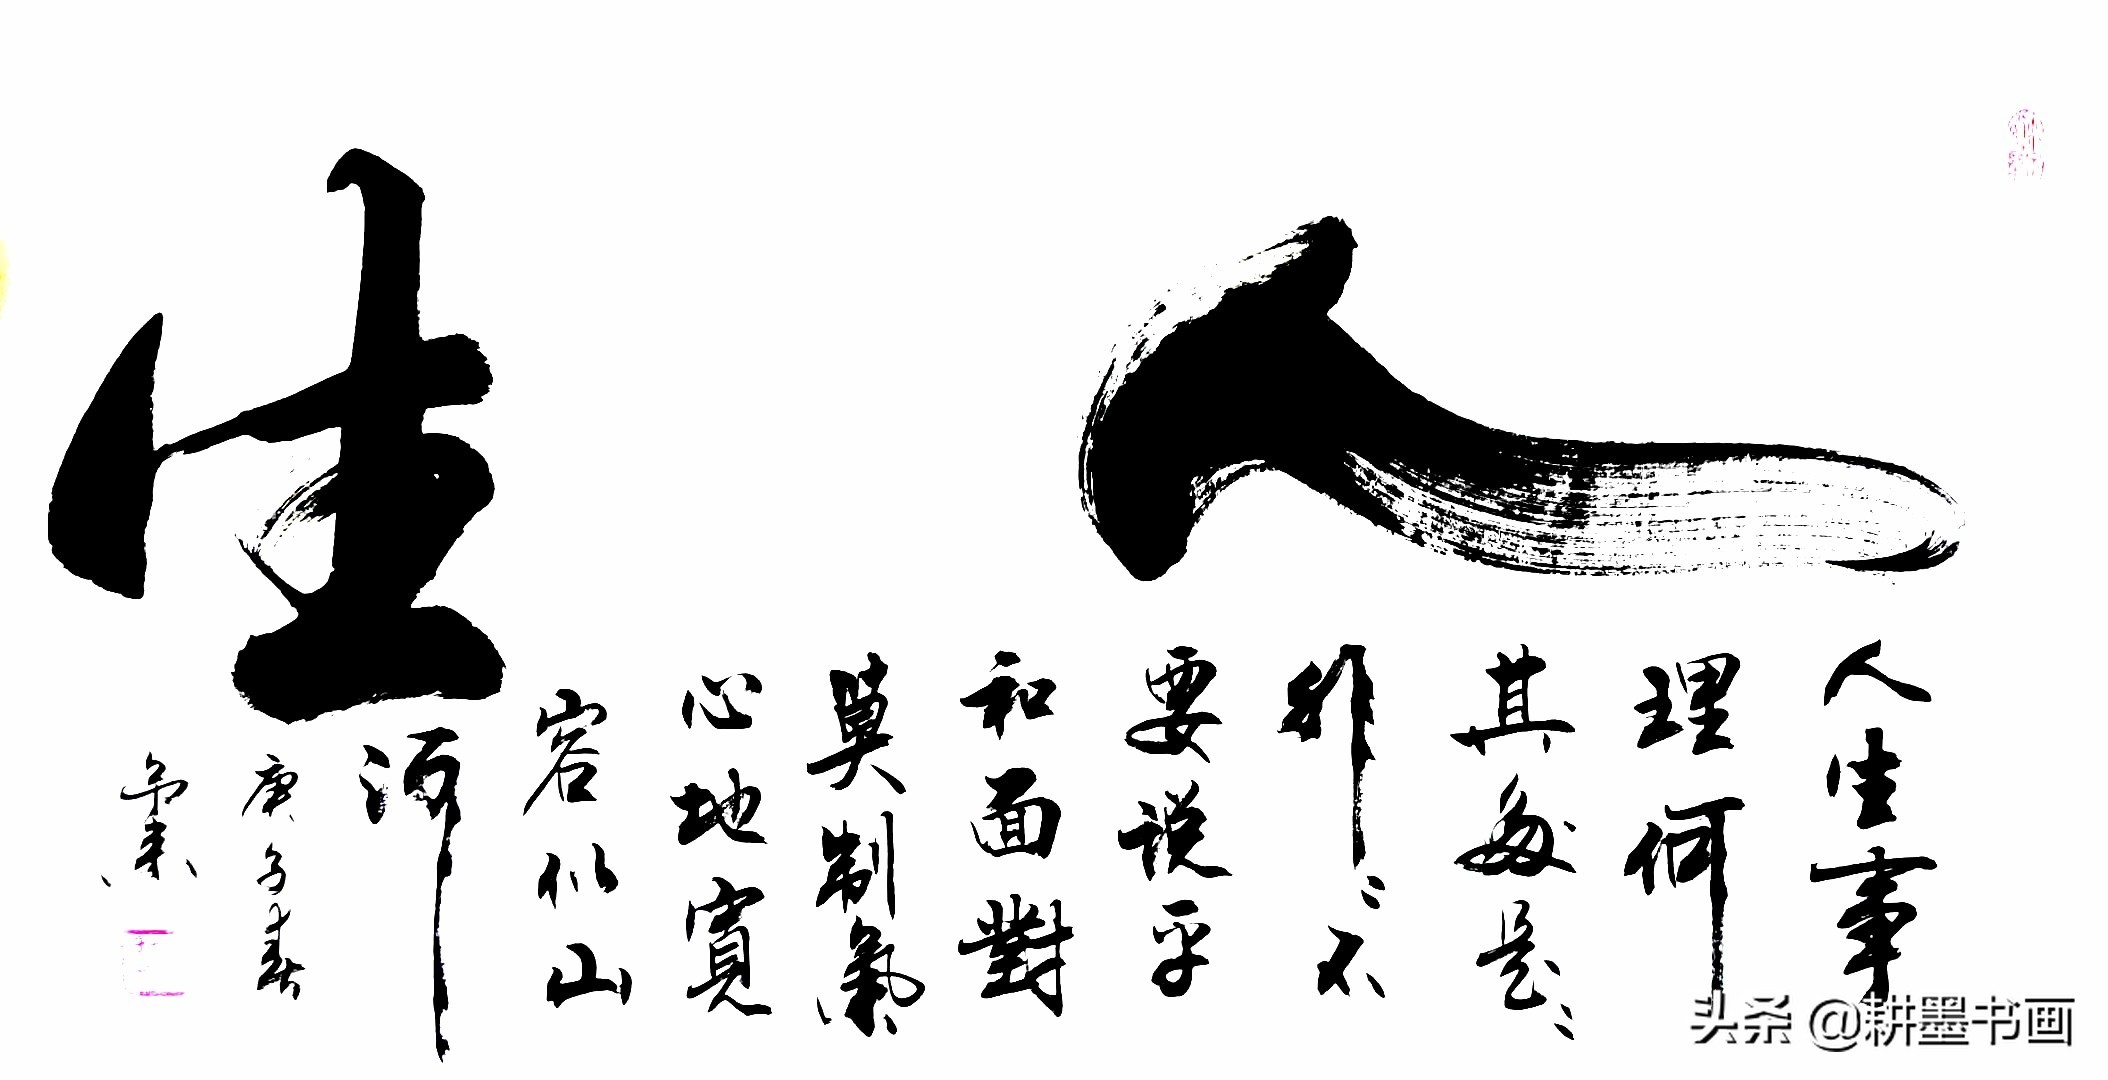 人生
人生事
理何
其多是〻
非〻不
要说平
和面對
莫制氣
心地寬
容似山
河
庚子春
头条 @耕墨书画